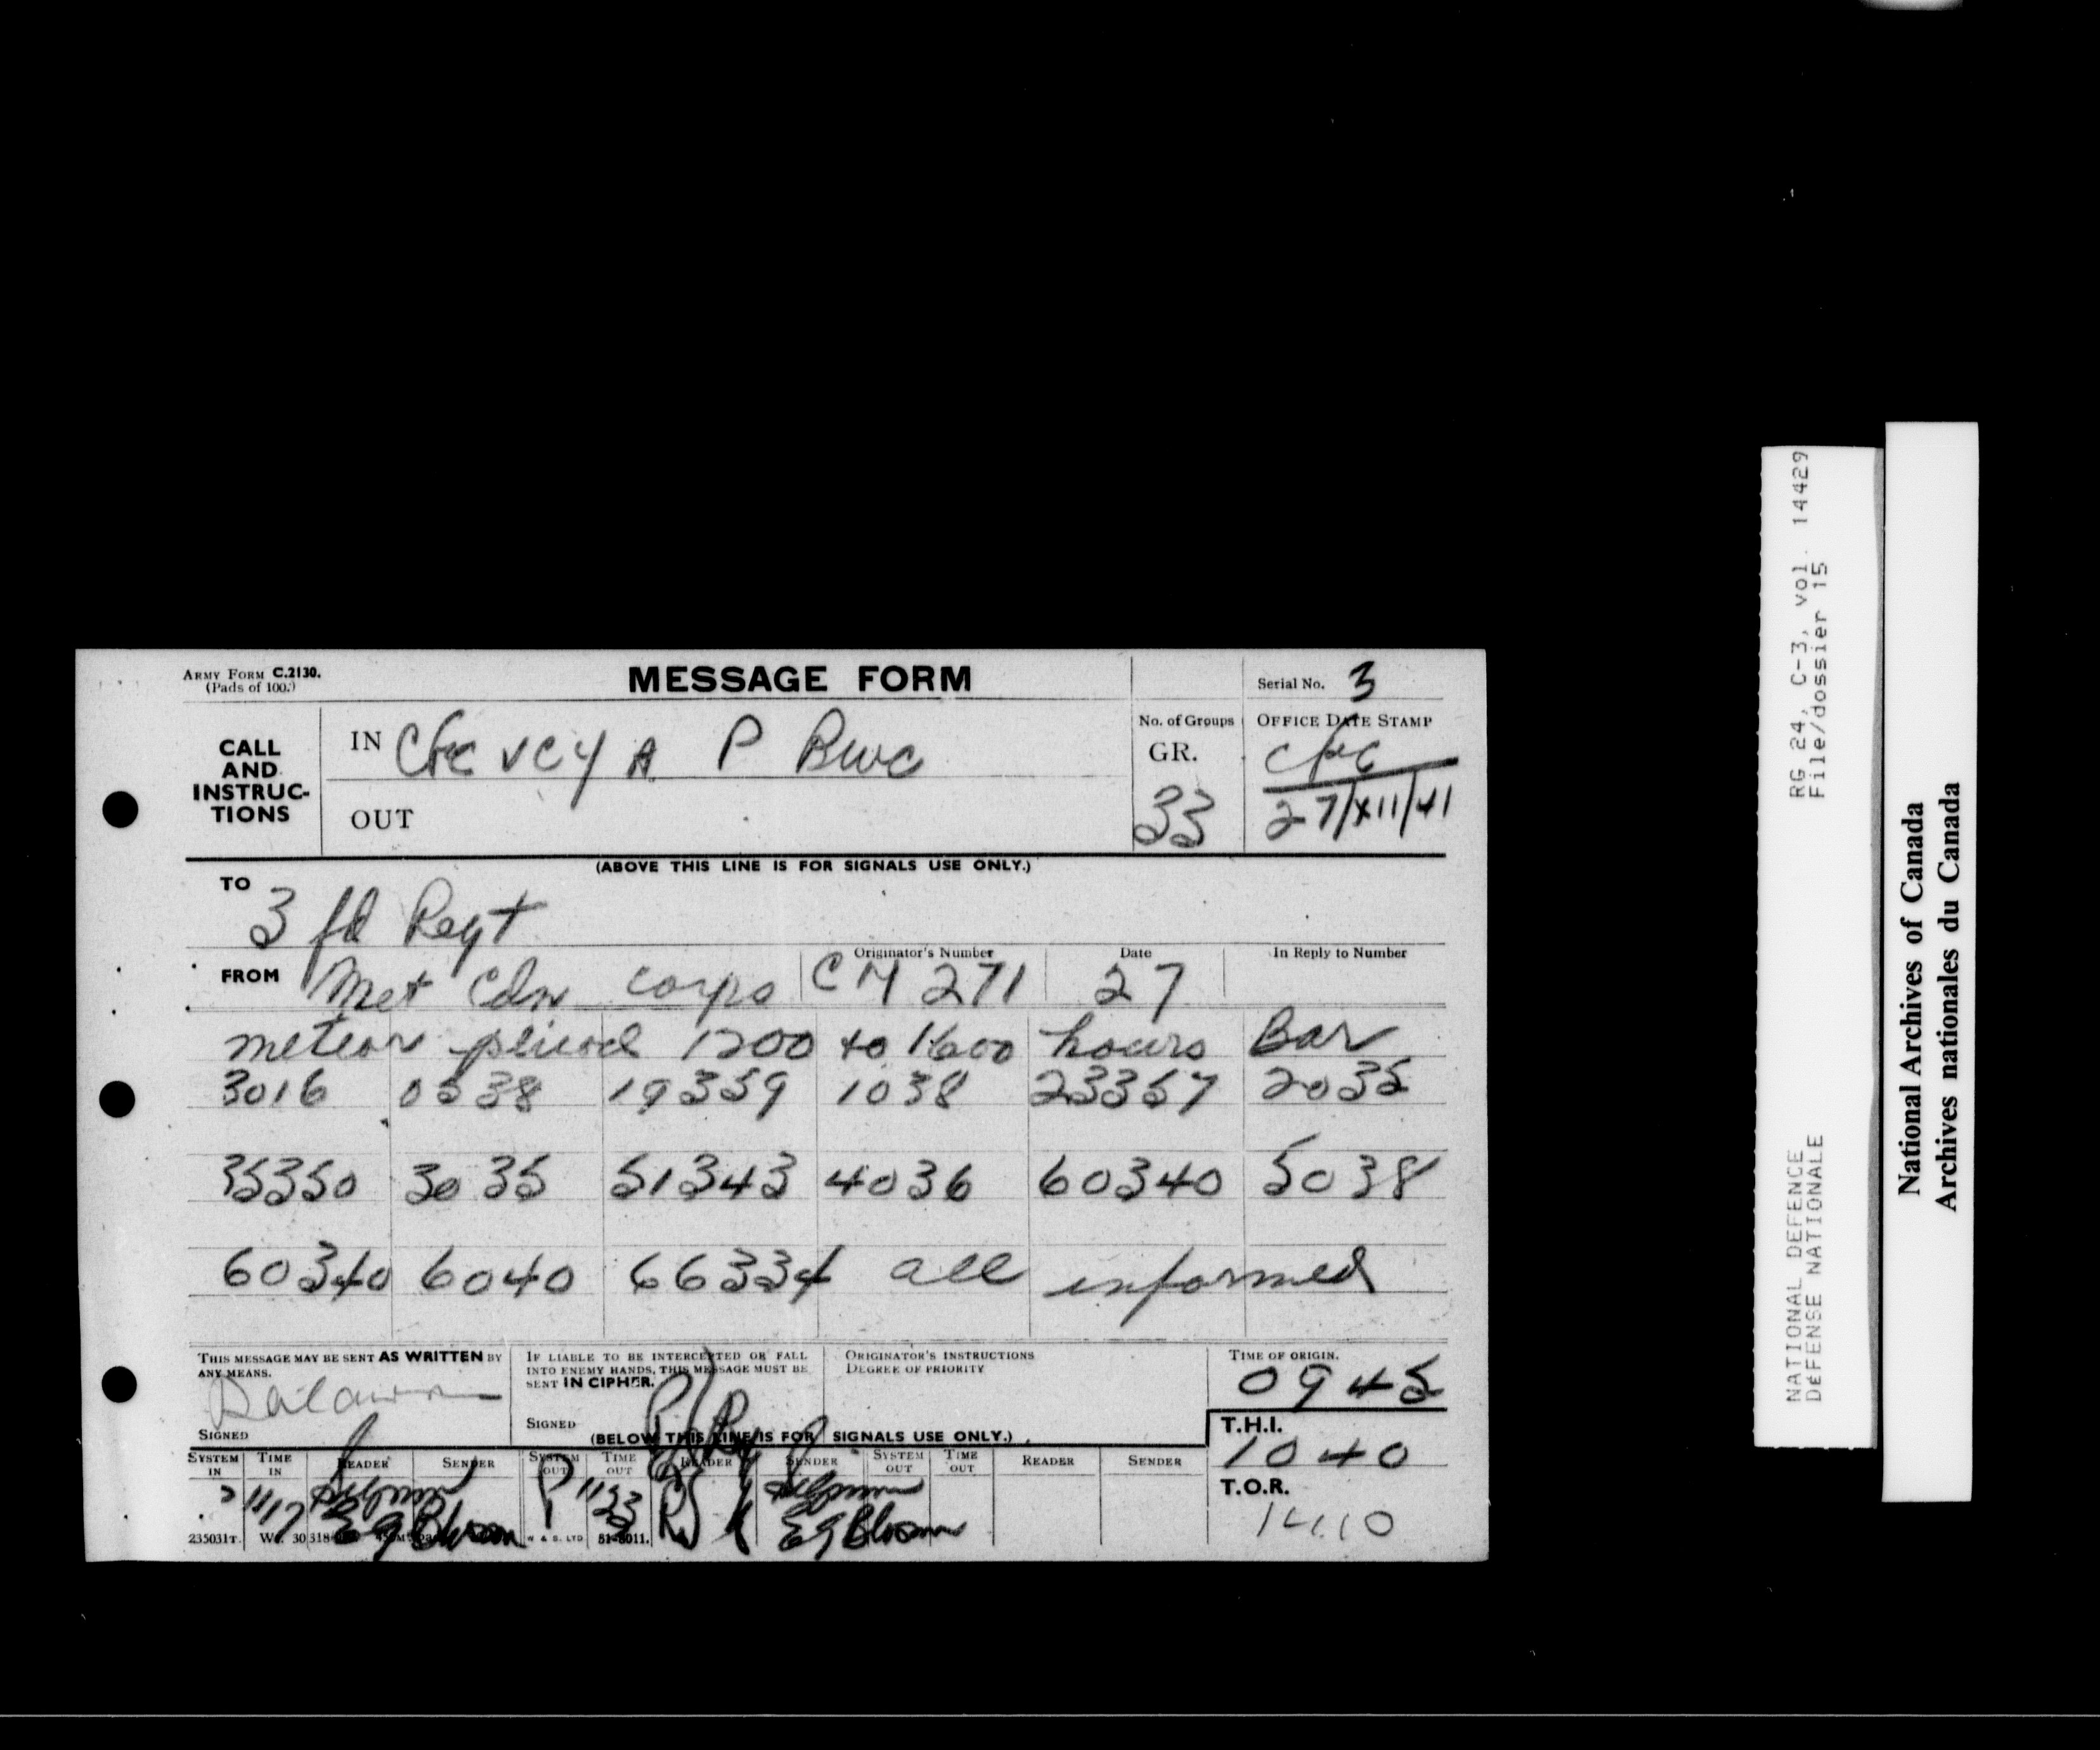 ARMY FORM C.2130.
(Pads of 100.)
MESSAGE FORM
Serial No. 3
CALL AND INSTRUC-TIONS
IN VCY A P BWC
OUT
No. of Groups
GR.
33
OFFICE DATE STAMP
27/XII/41
(ABOVE THIS LINE IS FOR SIGNALS USE ONLY.)
TO
3 fd Regt
FROM Met Cdn corps
Originator's Number
CM 271
Date
27
In Reply to Number
meteor period 1200 to 1600 hours Bar
3016 0538 19359 1038 23357 2035
35350 3035 51343 4036 60340 5038
60340 6040 66334 all informed
THIS MESSAGE MAY BE SENT AS WRITTEN BY
ANY MEANS.
SIGNED
IF LIABLE TO BE INTERCEPTED OR FALL
INTO ENEMY HANDS, THIS MESSAGE MUST BE
SENT IN CIPHER.
SIGNED
ORIGINATOR'S INSTRUCTIONS
DEGREE OF PRIORITY
TIME OF ORIGIN.
0945
(BELOW THIS LINE IS FOR SIGNALS USE ONLY.)
T.H.I.
1040
T.O.R.
1410
SYSTEM IN TIME IN READER SENDER SYSTEM OUT TIME OUT READER SENDER SYSTEM OUT TIME OUT READER SENDER
1117 P 1123
EG Bloom EG Bloom
235031T. W & S. LTD 51-8011.
RG 24, C-3, vol. 14429
File/dossier 15
NATIONAL DEFENCE
DÉFENSE NATIONALE
National Archives of Canada
Archives nationales du Canada